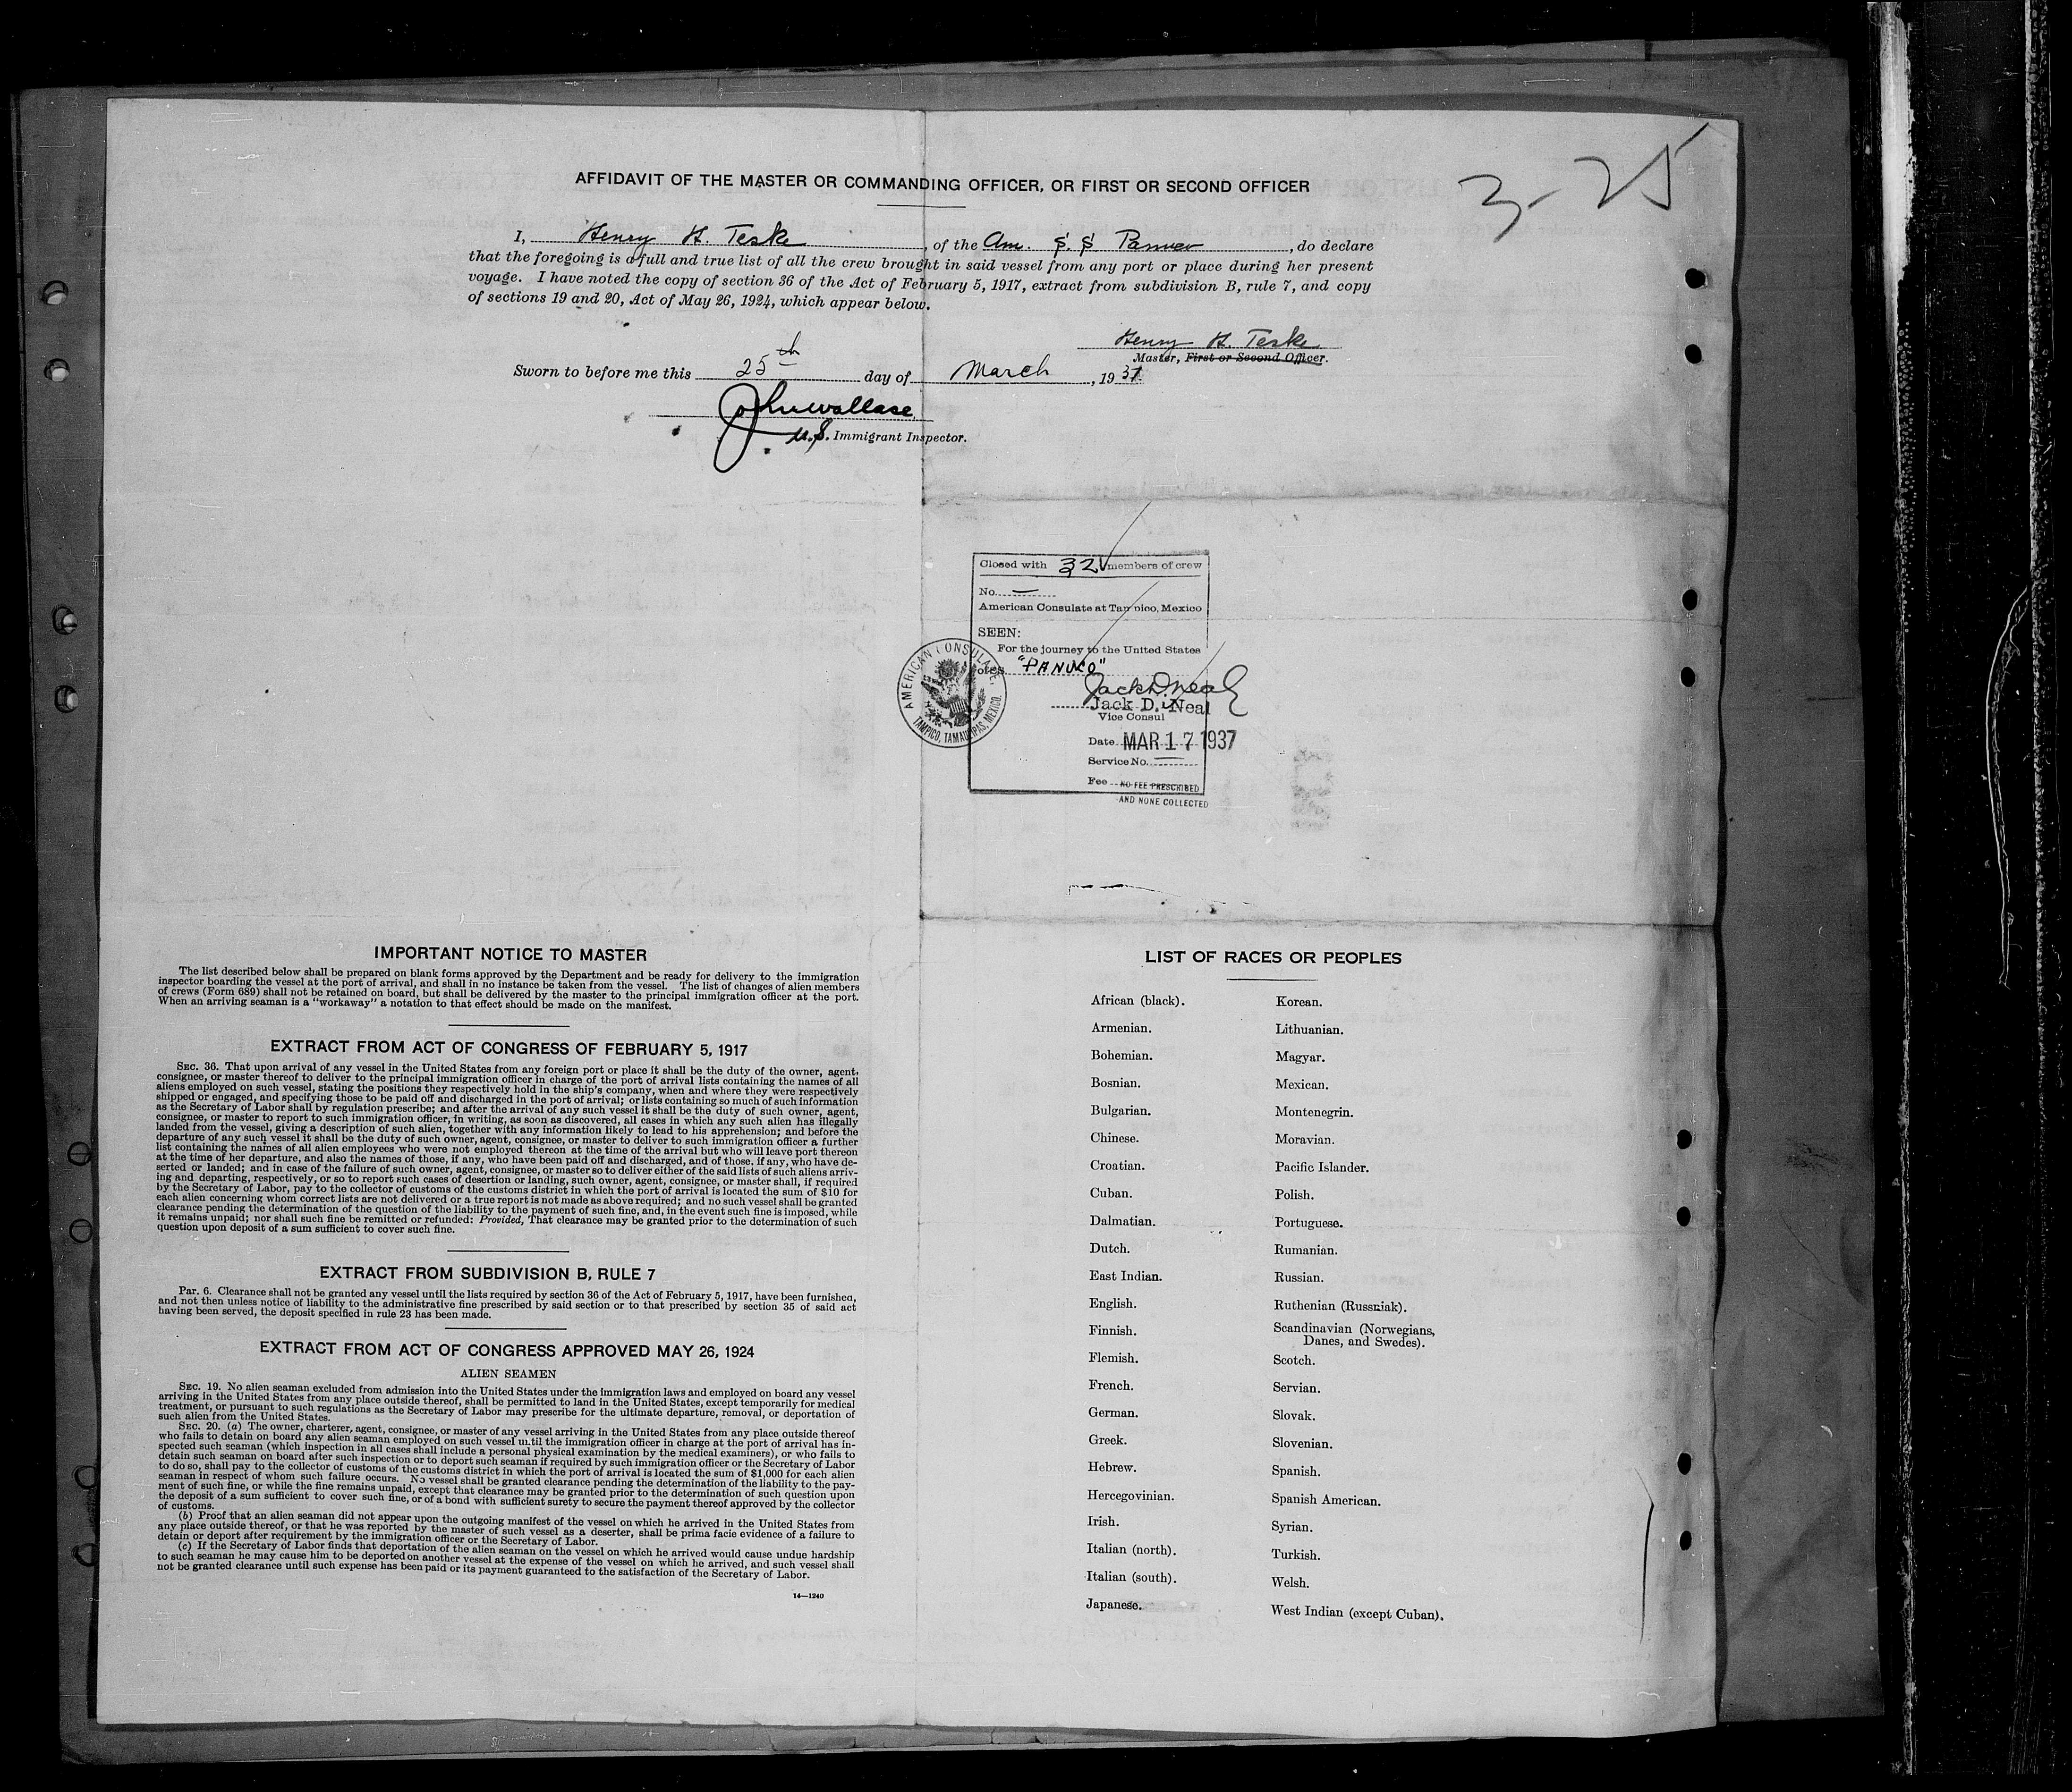 3-25
AFFIDAVIT OF THE MASTER OR COMMANDING OFFICER, OR FIRST OR SECOND OFFICER
I, Henry H. Teske, of the Am. S. S Panuco, do declare
that the foregoing is a full and true list of all the crew brought in said vessel from any port or place during her present
voyage. I have noted the copy of section 36 of the Act of February 5, 1917, extract from subdivision B, rule 7, and copy
of sections 19 and 20, Act of May 26, 1924, which appear below.
Henry H. Teske
Master, First or Second Officer.
Sworn to before me this 25th day of March, 1937.
John Wallace
U.S. Immigrant Inspector.
Closed with 32 members of crew
No. —
American Consulate at Tampico, Mexico
SEEN:
For the journey to the United States
"PANUCO"
Jack D. Neal
Jack D. Neal
Vice Consul
Date MAR 17 1937
Service No. —
Fee NO FEE PRESCRIBED
AND NONE COLLECTED
AMERICAN CONSULATE,
TAMPICO, TAMAULIPAS, MEXICO.
IMPORTANT NOTICE TO MASTER
The list described below shall be prepared on blank forms approved by the Department and be ready for delivery to the immigration
inspector boarding the vessel at the port of arrival, and shall in no instance be taken from the vessel. The list of changes of alien members
of crews (Form 689) shall not be retained on board, but shall be delivered by the master to the principal immigration officer at the port.
When an arriving seaman is a "workaway" a notation to that effect should be made on the manifest.
EXTRACT FROM ACT OF CONGRESS OF FEBRUARY 5, 1917
SEC. 36. That upon arrival of any vessel in the United States from any foreign port or place it shall be the duty of the owner, agent,
consignee, or master thereof to deliver to the principal immigration officer in charge of the port of arrival lists containing the names of all
aliens employed on such vessel, stating the positions they respectively hold in the ship's company, when and where they were respectively
shipped or engaged, and specifying those to be paid off and discharged in the port of arrival; or lists containing so much of such information
as the Secretary of Labor shall by regulation prescribe; and after the arrival of any such vessel it shall be the duty of such owner, agent,
consignee, or master to report to such immigration officer, in writing, as soon as discovered, all cases in which any such alien has illegally
landed from the vessel, giving a description of such alien, together with any information likely to lead to his apprehension; and before the
departure of any such vessel it shall be the duty of such owner, agent, consignee, or master to deliver to such immigration officer a further
list containing the names of all alien employees who were not employed thereon at the time of the arrival but who will leave port thereon
at the time of her departure, and also the names of those, if any, who have been paid off and discharged, and of those, if any, who have de-
serted or landed; and in case of the failure of such owner, agent, consignee, or master so to deliver either of the said lists of such aliens arriv-
ing and departing, respectively, or so to report such cases of desertion or landing, such owner, agent, consignee, or master shall, if required
by the Secretary of Labor, pay to the collector of customs of the customs district in which the port of arrival is located the sum of $10 for
each alien concerning whom correct lists are not delivered or a true report is not made as above required; and no such vessel shall be granted
clearance pending the determination of the question of the liability to the payment of such fine, and, in the event such fine is imposed, while
it remains unpaid; nor shall such fine be remitted or refunded: Provided, That clearance may be granted prior to the determination of such
question upon deposit of a sum sufficient to cover such fine.
EXTRACT FROM SUBDIVISION B, RULE 7
Par. 6. Clearance shall not be granted any vessel until the lists required by section 36 of the Act of February 5, 1917, have been furnished,
and not then unless notice of liability to the administrative fine prescribed by said section or to that prescribed by section 35 of said act
having been served, the deposit specified in rule 23 has been made.
EXTRACT FROM ACT OF CONGRESS APPROVED MAY 26, 1924
ALIEN SEAMEN
SEC. 19. No alien seaman excluded from admission into the United States under the immigration laws and employed on board any vessel
arriving in the United States from any place outside thereof, shall be permitted to land in the United States, except temporarily for medical
treatment, or pursuant to such regulations as the Secretary of Labor may prescribe for the ultimate departure, removal, or deportation of
such alien from the United States.
SEC. 20. (a) The owner, charterer, agent, consignee, or master of any vessel arriving in the United States from any place outside thereof
who fails to detain on board any alien seaman employed on such vessel until the immigration officer in charge at the port of arrival has in-
spected such seaman (which inspection in all cases shall include a personal physical examination by the medical examiners), or who fails to
detain such seaman on board after such inspection or to deport such seaman if required by such immigration officer or the Secretary of Labor
to do so, shall pay to the collector of customs of the customs district in which the port of arrival is located the sum of $1,000 for each alien
seaman in respect of whom such failure occurs. No vessel shall be granted clearance pending the determination of the liability to the pay-
ment of such fine, or while the fine remains unpaid, except that clearance may be granted prior to the determination of such question upon
the deposit of a sum sufficient to cover such fine, or of a bond with sufficient surety to secure the payment thereof approved by the collector
of customs.
(b) Proof that an alien seaman did not appear upon the outgoing manifest of the vessel on which he arrived in the United States from
any place outside thereof, or that he was reported by the master of such vessel as a deserter, shall be prima facie evidence of a failure to
detain or deport after requirement by the immigration officer or the Secretary of Labor.
(c) If the Secretary of Labor finds that deportation of the alien seaman on the vessel on which he arrived would cause undue hardship
to such seaman he may cause him to be deported on another vessel at the expense of the vessel on which he arrived, and such vessel shall
not be granted clearance until such expense has been paid or its payment guaranteed to the satisfaction of the Secretary of Labor.
14—1240
LIST OF RACES OR PEOPLES
African (black).
Armenian.
Bohemian.
Bosnian.
Bulgarian.
Chinese.
Croatian.
Cuban.
Dalmatian.
Dutch.
East Indian.
English.
Finnish.
Flemish.
French.
German.
Greek.
Hebrew.
Hercegovinian.
Irish.
Italian (north).
Italian (south).
Japanese.
Korean.
Lithuanian.
Magyar.
Mexican.
Montenegrin.
Moravian.
Pacific Islander.
Polish.
Portuguese.
Rumanian.
Russian.
Ruthenian (Russniak).
Scandinavian (Norwegians,
Danes, and Swedes).
Scotch.
Servian.
Slovak.
Slovenian.
Spanish.
Spanish American.
Syrian.
Turkish.
Welsh.
West Indian (except Cuban).